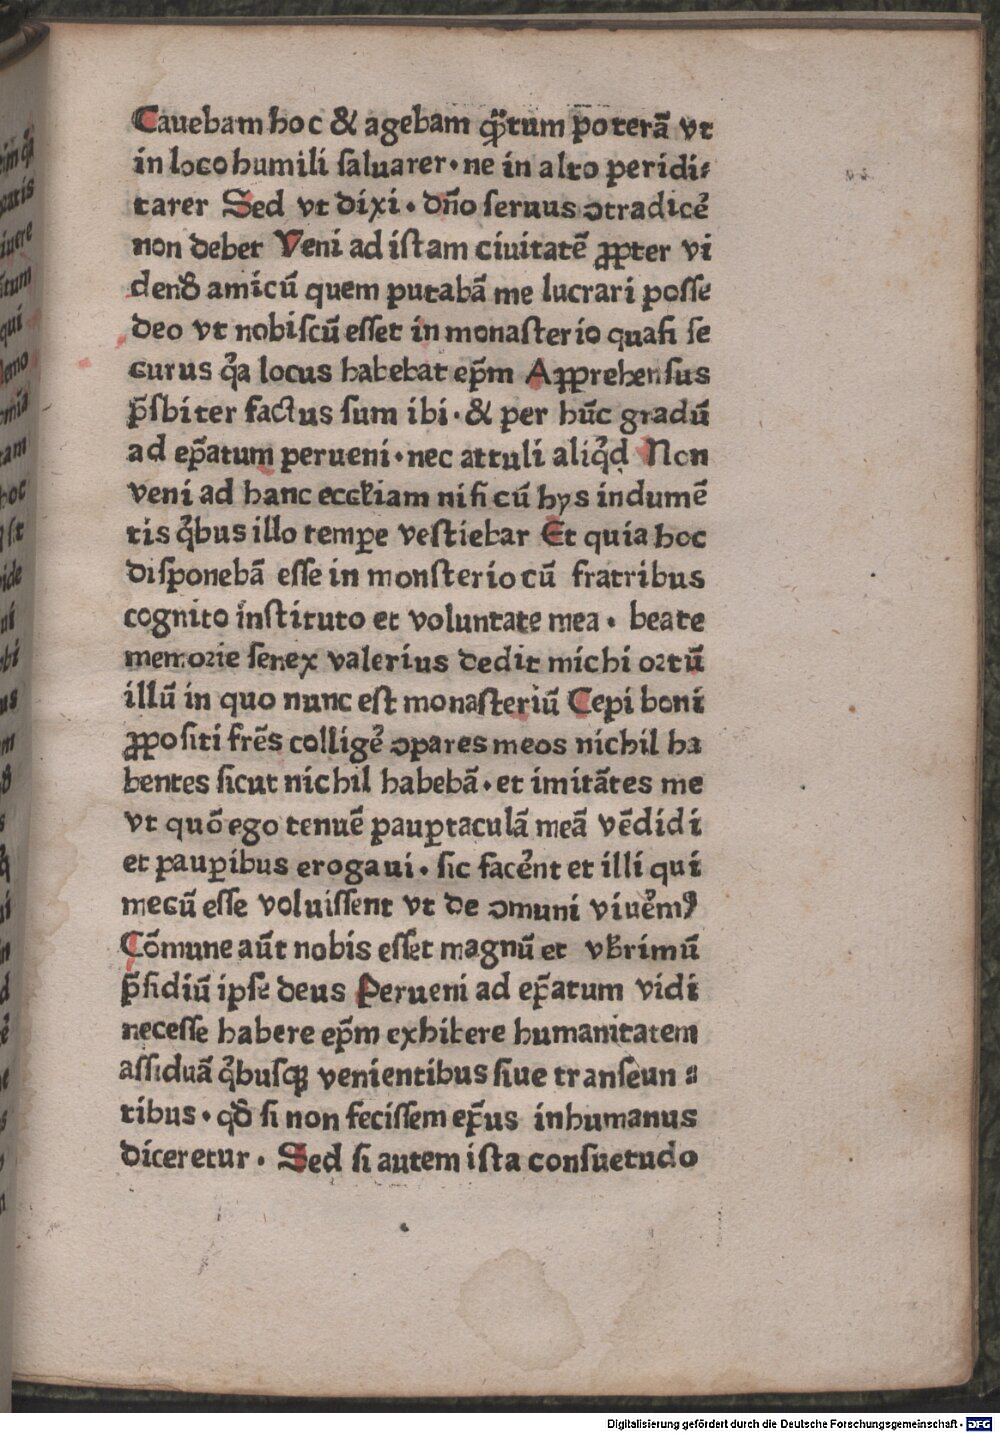 Cauebam hoc & agebam qᷓtum poterā vt
in loco humili saluarer · ne in alto peridi⸗
tarer Sed vt dixi · dn̄o seruus ꝯtradicẽ
non debet Veni ad istam ciuitatē ꝓpter vi
dendū amicū quem putabā me lucrari posse
deo vt nobiscū esset in monasterio quasi se
curus qͥa locus habebat ep̄m Apprehensus
p̄sbiter factus sum ibi · & per hūc gradū
ad ep̄atum perueni · nec attuli aliqͥd Non
veni ad hanc eccl̄iam nisi cū hys indumē
tis qͥbus illo tempe vestiebar Et quia hoc
disponebā esse in monsterio cū fratribus
cognito instituto et voluntate mea · beate
memorie senex valerius dedit michi ortū
illū in quo nunc est monasteriū Cepi boni
ꝓpositi frēs colligẽ ꝯpares meos nichil ha
bentes sicut nichil habebā · et imitātes me
vt quō ego tenuē paup̱taculā meā vēdidi
et paup̱ibus erogaui · sic facẽnt et illi qui
mecū esse voluissent vt de ꝯmuni viuẽmꝰ
Cōmune aūt nobis esset magnū et vb̄rimū
p̄sidiū ipse deus Perueni ad ep̄atum vidi
necesse habere ep̄m exhibere humanitatem
assiduā qͥbusqꝫ venientibus siue transeun ⸗
tibus · qđ si non fecissem ep̄us inhumanus
diceretur · Sed si autem ista consuetudo
Digitalisierung gefördert durch die Deutsche Forschungsgemeinschaft - DFG